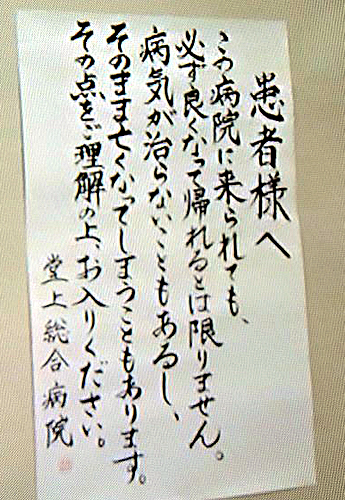 患者様へ
この病院に来られても、
必ず良くなって帰れるとは限りません。
病気が治らないこともあるし、
そのまま亡くなってしまうこともあります。
その点をご理解の上、お入りください。
堂上総合病院